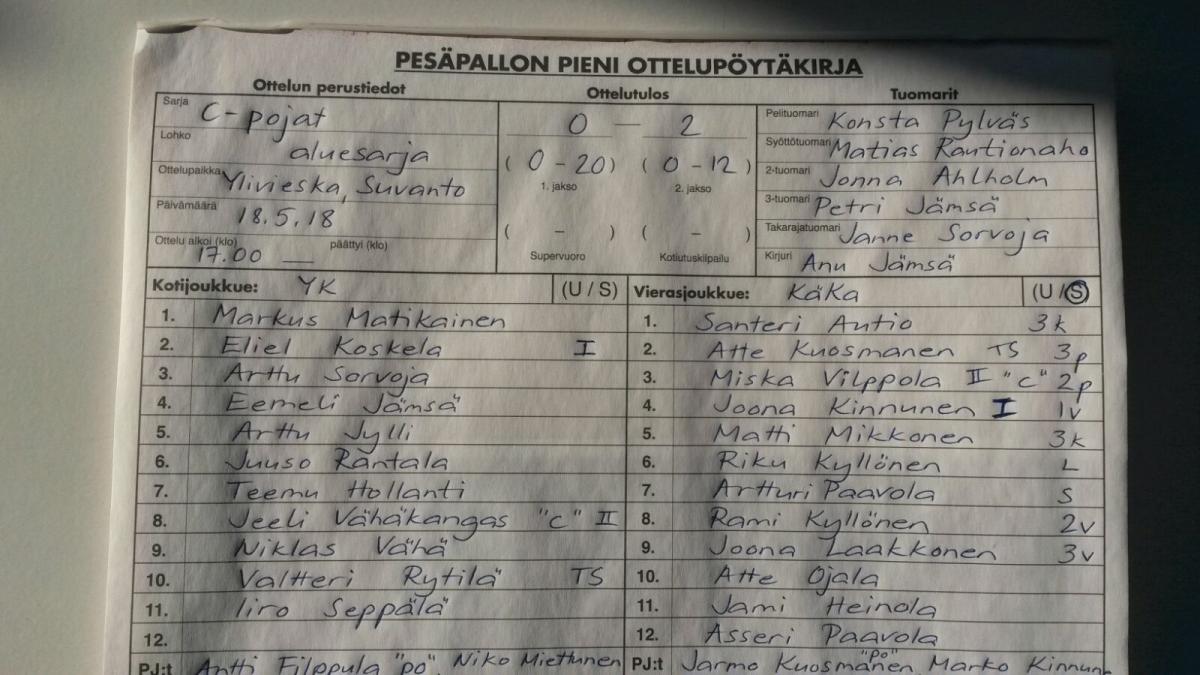 PESÄPALLON PIENI OTTELUPÖYTÄKIRJA
Ottelun perustiedot
Sarja C-pojat
Lohko aluesarja
Ottelupaikka Ylivieska, Suvanto
Päivämäärä 18.5.18
Ottelu alkoi (klo) 17.00 päättyi (klo) —
Ottelutulos
0 — 2
(0-20) (0-12)
1. jakso 2. jakso
( - ) ( - )
Supervuoro Kotiutuskilpailu
Tuomarit
Pelituomari Konsta Pylväs
Syöttötuomari Matias Rautionaho
2-tuomari Jonna Ahlholm
3-tuomari Petri Jämsä
Takarajatuomari Janne Sorvoja
Kirjuri Anu Jämsä
Kotijoukkue: YK (U / S)
1. Markus Matikainen
2. Eliel Koskela I
3. Arttu Sorvoja
4. Eemeli Jämsä
5. Arttu Jylli
6. Juuso Rantala
7. Teemu Hollanti
8. Jeeli Vähäkangas "c" II
9. Niklas Vähä
10. Valtteri Rytilä TS
11. Iiro Seppälä
12.
PJ:t Antti Filppula "po" Niko Miettunen
Vierasjoukkue: KäKa (U / S)
1. Santeri Autio 3k
2. Atte Kuosmanen TS 3p
3. Miska Vilppola II "c" 2p
4. Joona Kinnunen I 1v
5. Matti Mikkonen 3k
6. Riku Kyllönen L
7. Artturi Paavola S
8. Rami Kyllönen 2v
9. Joona Laakkonen 3v
10. Atte Ojala
11. Jami Heinola
12. Asseri Paavola
PJ:t Jarmo Kuosmanen "po" Marko Kinnun